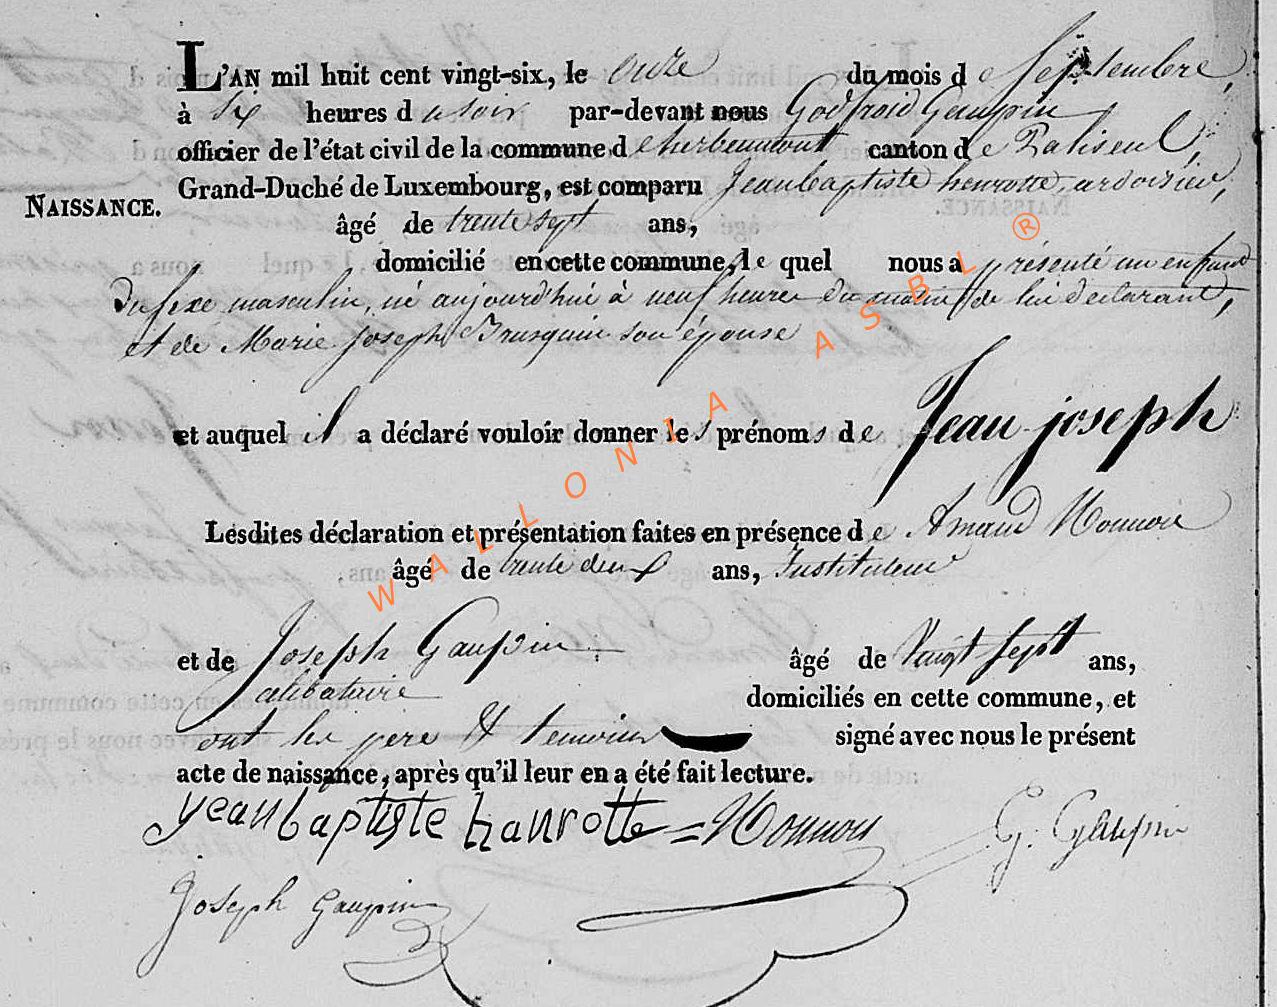 L'AN mil huit cent vingt-six, le onze du mois de Septembre,
à six heures du soir par-devant nous Godfroid Gaupin
officier de l'état civil de la commune d'herbeumont canton de Paliseul,
Grand-Duché de Luxembourg, est comparu Jean baptiste henrotte, ardoisier,
NAISSANCE.
âgé de trente sept ans,
domicilié en cette commune, le quel nous a présenté un enfant
du sexe masculin, né aujourd'hui à neuf heures du matin de lui déclarant,
et de Marie Joseph Brusquin son épouse
et auquel il a déclaré vouloir donner les prénoms de Jean joseph
Lesdites déclaration et présentation faites en présence de Amand Monnon
âgé de trente deux ans, Instituteur
et de Joseph Gaupin âgé de Vingt sept ans,
célibataire domiciliés en cette commune, et
ont les père & temoins signé avec nous le présent
acte de naissance, après qu'il leur en a été fait lecture.
jean baptiste hanrotte = Monnon G. Gaupin
Joseph Gaupin
WALLONIA ASBL ®